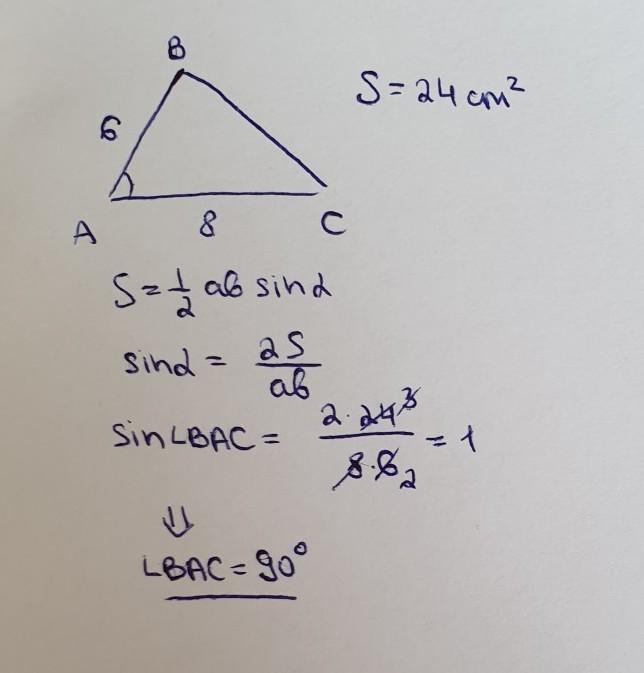 B
S = 24 cm²
6
A
8
C
S = 1/2 ab sinα
sinα = 2S/ab
sin∠BAC = 2·24 3/8·6 2 = 1
⇓
∠BAC = 90°